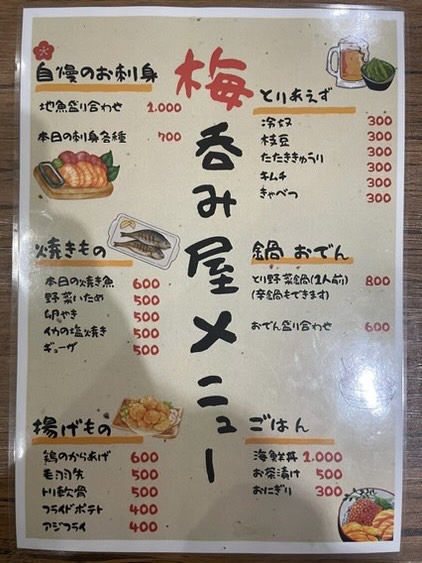 梅 呑み屋メニュー
自慢のお刺身
地魚盛り合わせ 1.000
本日の刺身各種 700
とりあえず
冷奴 300
枝豆 300
たたききゅうり 300
キムチ 300
きゃべつ 300
焼きもの
本日の焼き魚 600
野菜いため 500
卵やき 500
イカの塩焼き 500
ギョーザ 500
鍋 おでん
とり野菜鍋(1人前) 800
(辛鍋もできます)
おでん盛り合わせ 600
揚げもの
鶏のからあげ 600
手羽先 500
トリ軟骨 500
フライドポテト 400
アジフライ 400
ごはん
海鮮丼 1.000
お茶漬け 500
おにぎり 300